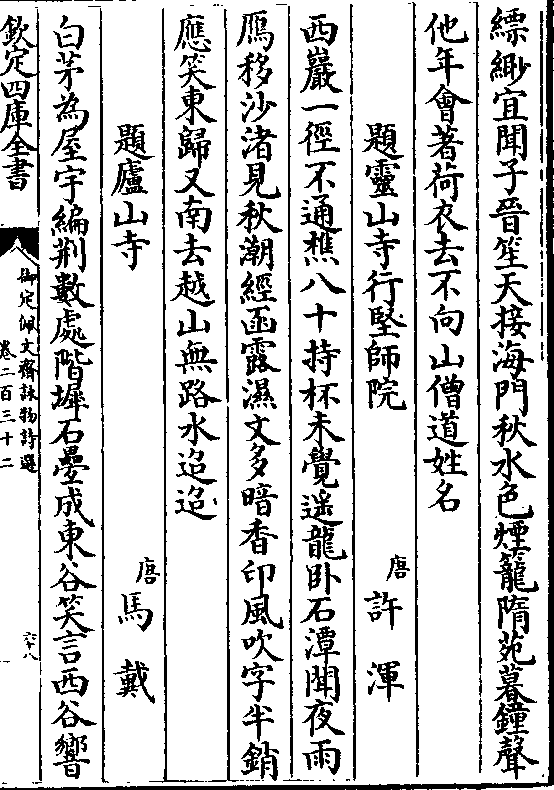 縹緲宜聞子晉笙天接海門秋水色煙籠隋苑暮鐘聲
他年會著荷衣去不向山僧道姓名
題靈山寺行堅師院
唐 許渾
西巖一徑不通樵八十持杯未覺遥龍卧石潭聞夜雨
鴈移沙渚見秋潮經函露濕文多暗香印風吹字半銷
應笑東歸又南去越山無路水迢迢
題廬山寺
唐 馬戴
白茅為屋宇編荆數處階墀石疊成東谷笑言西谷響
欽定四庫全書
御定佩文齋詠物詩選
卷二百三十二
六十八